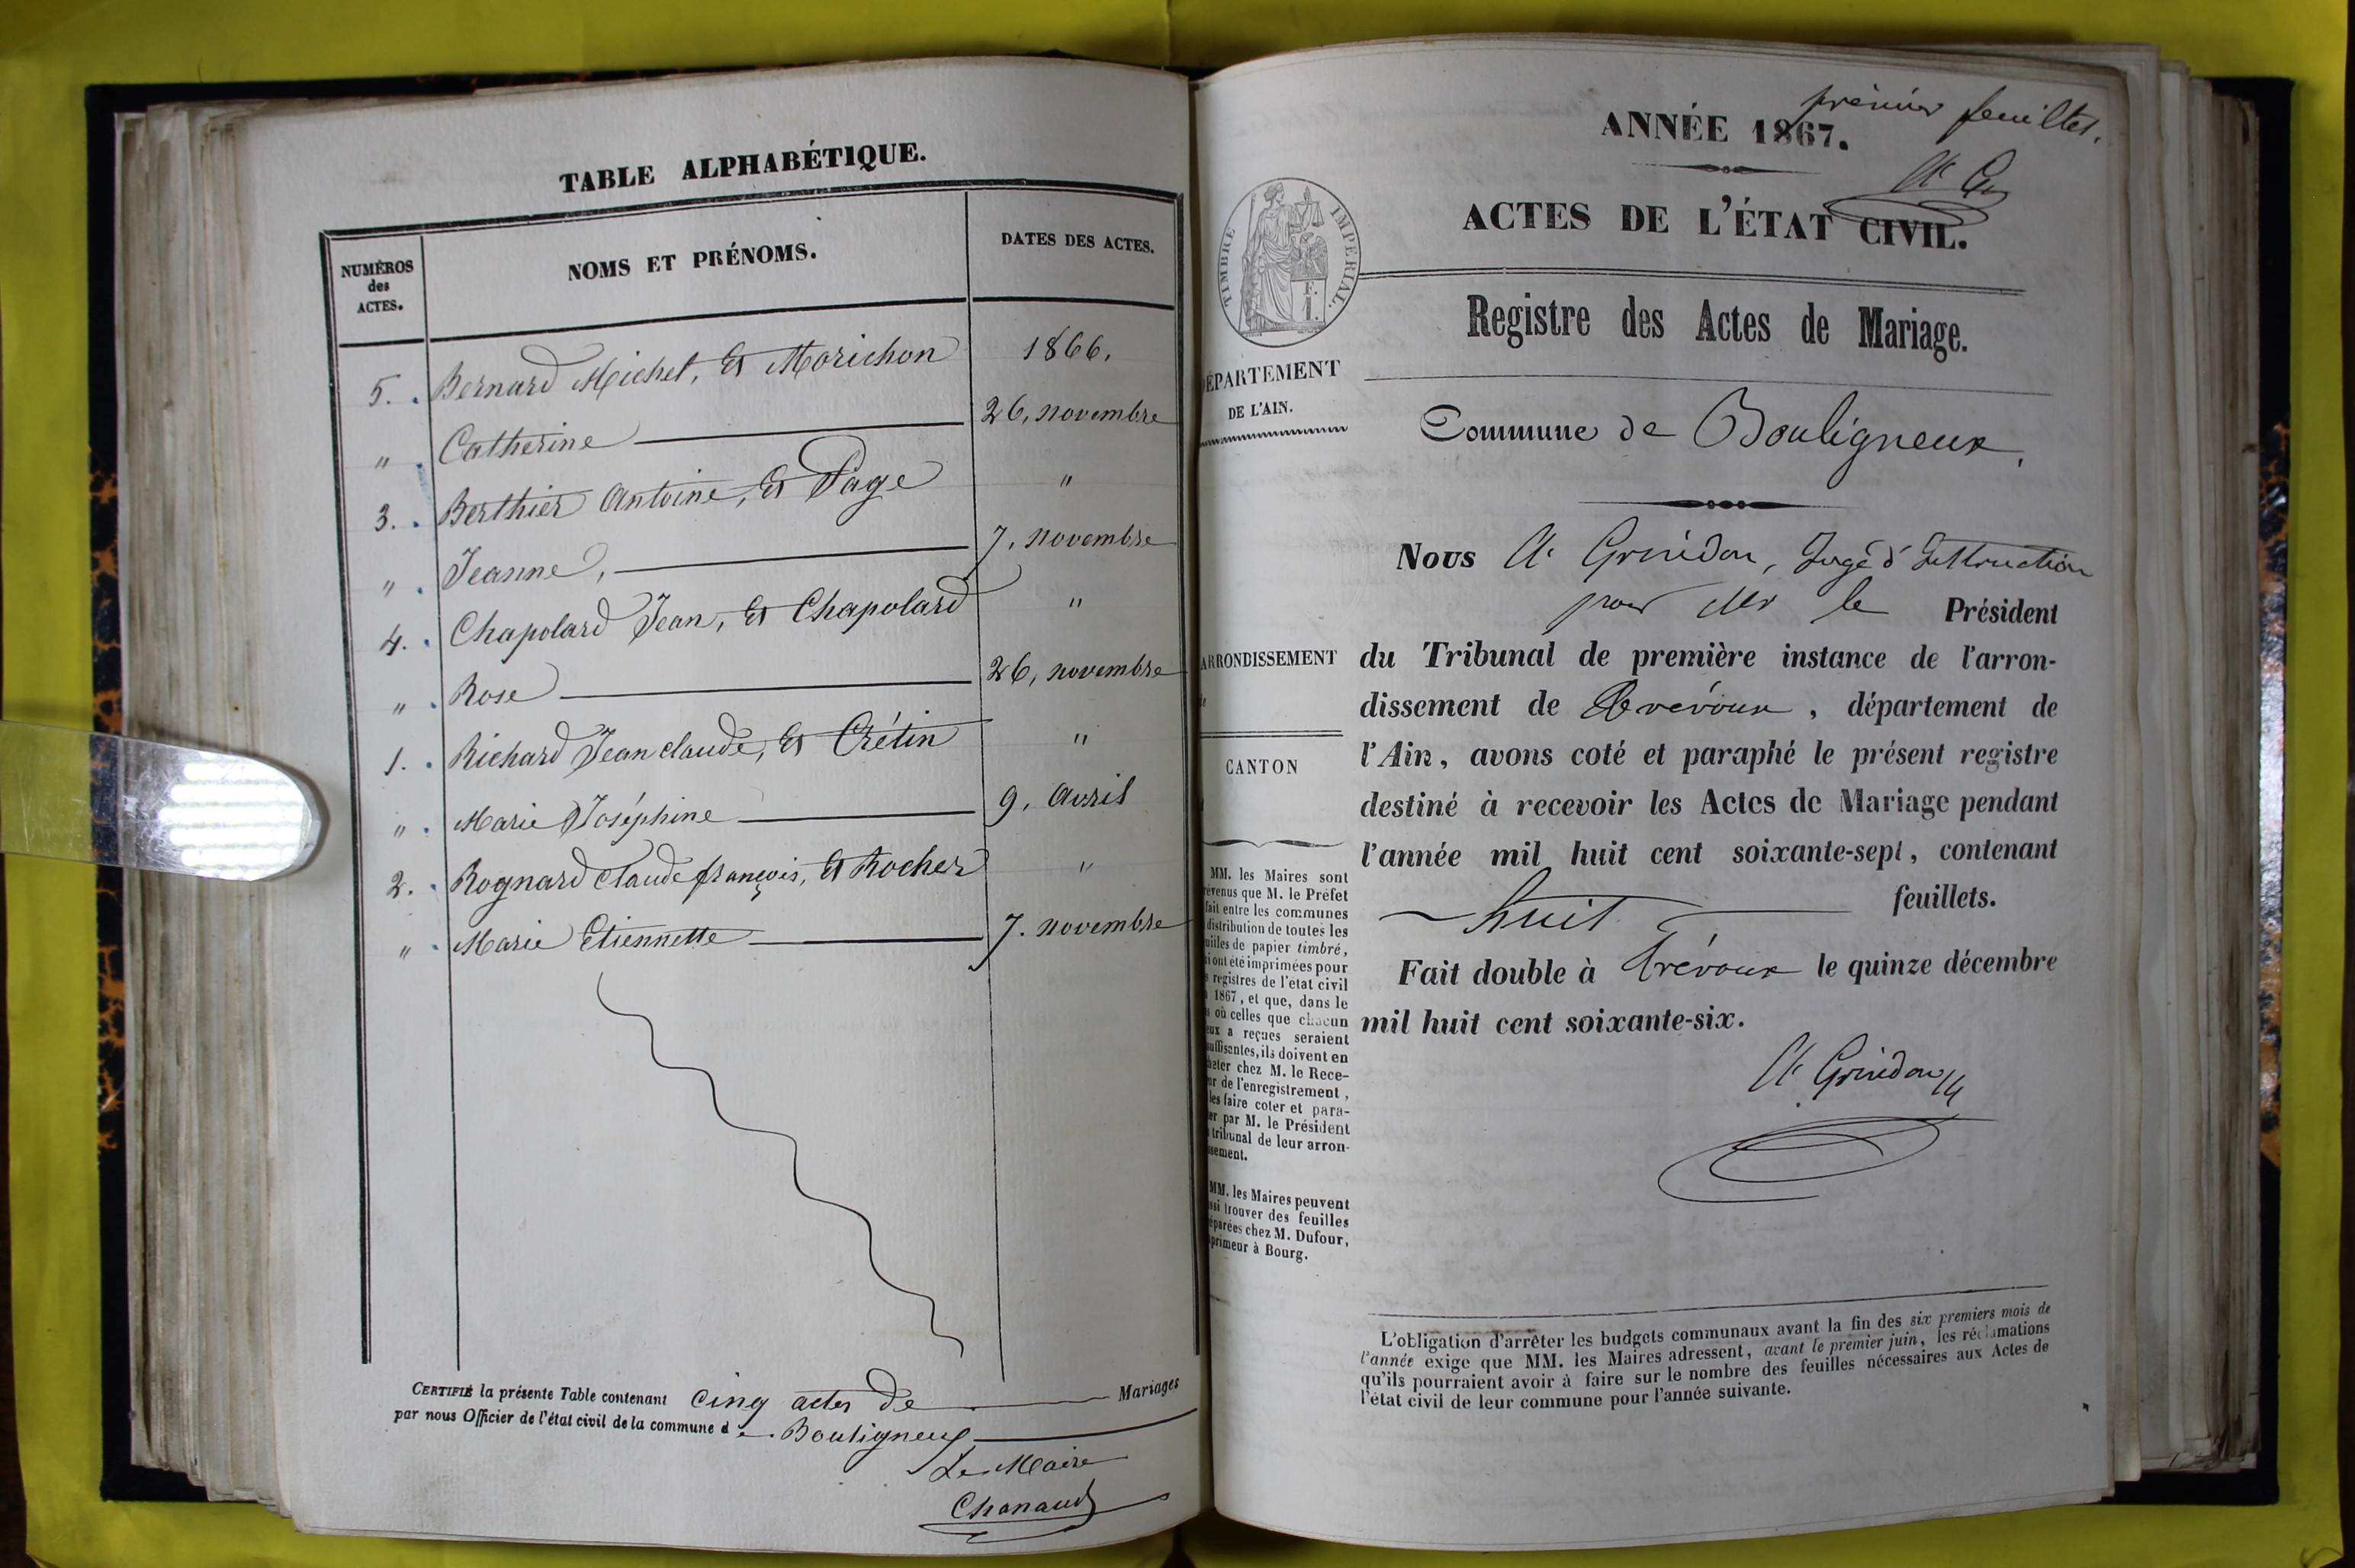 TABLE ALPHABÉTIQUE.
NUMÉROS
des
ACTES.
NOMS ET PRÉNOMS.
DATES DES ACTES.
1866,
5. Bernard Michel, Et Morichon
26, novembre
" Catherine
"
3. Berthier Antoine, Et Page
7, novembre
" Jeanne,
"
4. Chapolard Jean, Et Chapolard
26, novembre
" Rose
"
1. Richard Jean claude, Et Crétin
9, Avril
" Marie Joséphine
"
2. Rognard Claude françois, Et Rocher
7. novembre
" Marie Etiennette
CERTIFIÉ la présente Table contenant cinq actes de Mariages
par nous Officier de l'état civil de la commune de Bouligneux
Le Maire
Chanaud
premier feuillet.
ANNÉE 1867.
ACTES DE L'ÉTAT CIVIL.
TIMBRE IMPÉRIAL.
Registre des Actes de Mariage.
DÉPARTEMENT
DE L'AIN.
Commune de Bouligneux.
Nous Grindon, Juge d'Instruction
pour Mr le Président
ARRONDISSEMENT
du Tribunal de première instance de l'arron-
dissement de Trévoux, département de
l'Ain, avons coté et paraphé le présent registre
CANTON
destiné à recevoir les Actes de Mariage pendant
l'année mil huit cent soixante-sept, contenant
huit feuillets.
Fait double à Trévoux le quinze décembre
mil huit cent soixante-six.
Grindon
MM. les Maires sont
révenus que M. le Préfet
fait entre les communes
distribution de toutes les
uilles de papier timbré,
i ont été imprimées pour
s registres de l'état civil
1867, et que, dans le
s où celles que chacun
eux a reçues seraient
suffisantes, ils doivent en
heter chez M. le Rece-
ur de l'enregistrement,
les faire coter et para-
er par M. le Président
tribunal de leur arron-
ssement.
MM. les Maires peuvent
ssi trouver des feuilles
éparées chez M. Dufour,
primeur à Bourg.
L'obligation d'arrêter les budgets communaux avant la fin des six premiers mois de
l'année exige que MM. les Maires adressent, avant le premier juin, les réclamations
qu'ils pourraient avoir à faire sur le nombre des feuilles nécessaires aux Actes de
l'état civil de leur commune pour l'année suivante.